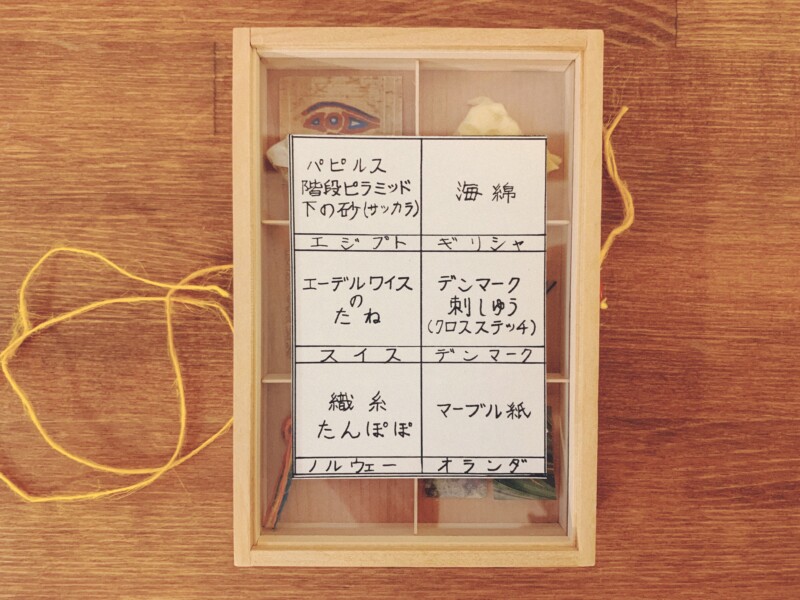 パピルス
階段ピラミッド
下の砂(サッカラ)
エジプト
海綿
ギリシャ
エーデルワイス
の
たね
スイス
デンマーク
刺しゅう
(クロスステッチ)
デンマーク
織糸
たんぽぽ
ノルウェー
マーブル紙
オランダ